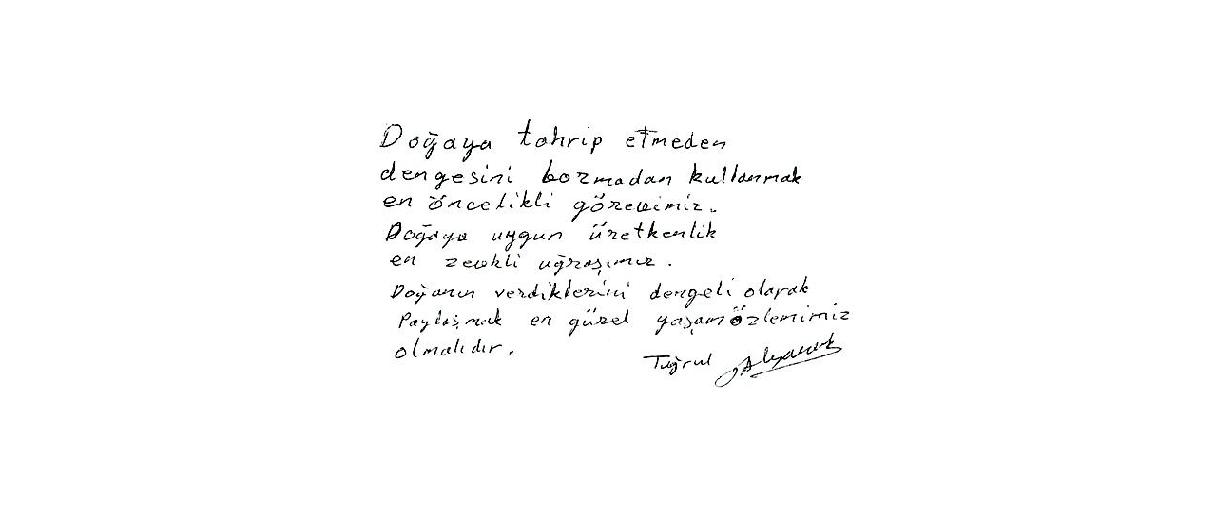 Doğaya tahrip etmeden
dengesini bozmadan kullanmak
en öncelikli görevimiz.
Doğaya uygun üretkenlik
en zevkli uğraşımız.
Doğanın verdiklerini dengeli olarak
Paylaşmak en güzel yaşam özlemimiz
olmalıdır.
Tuğrul